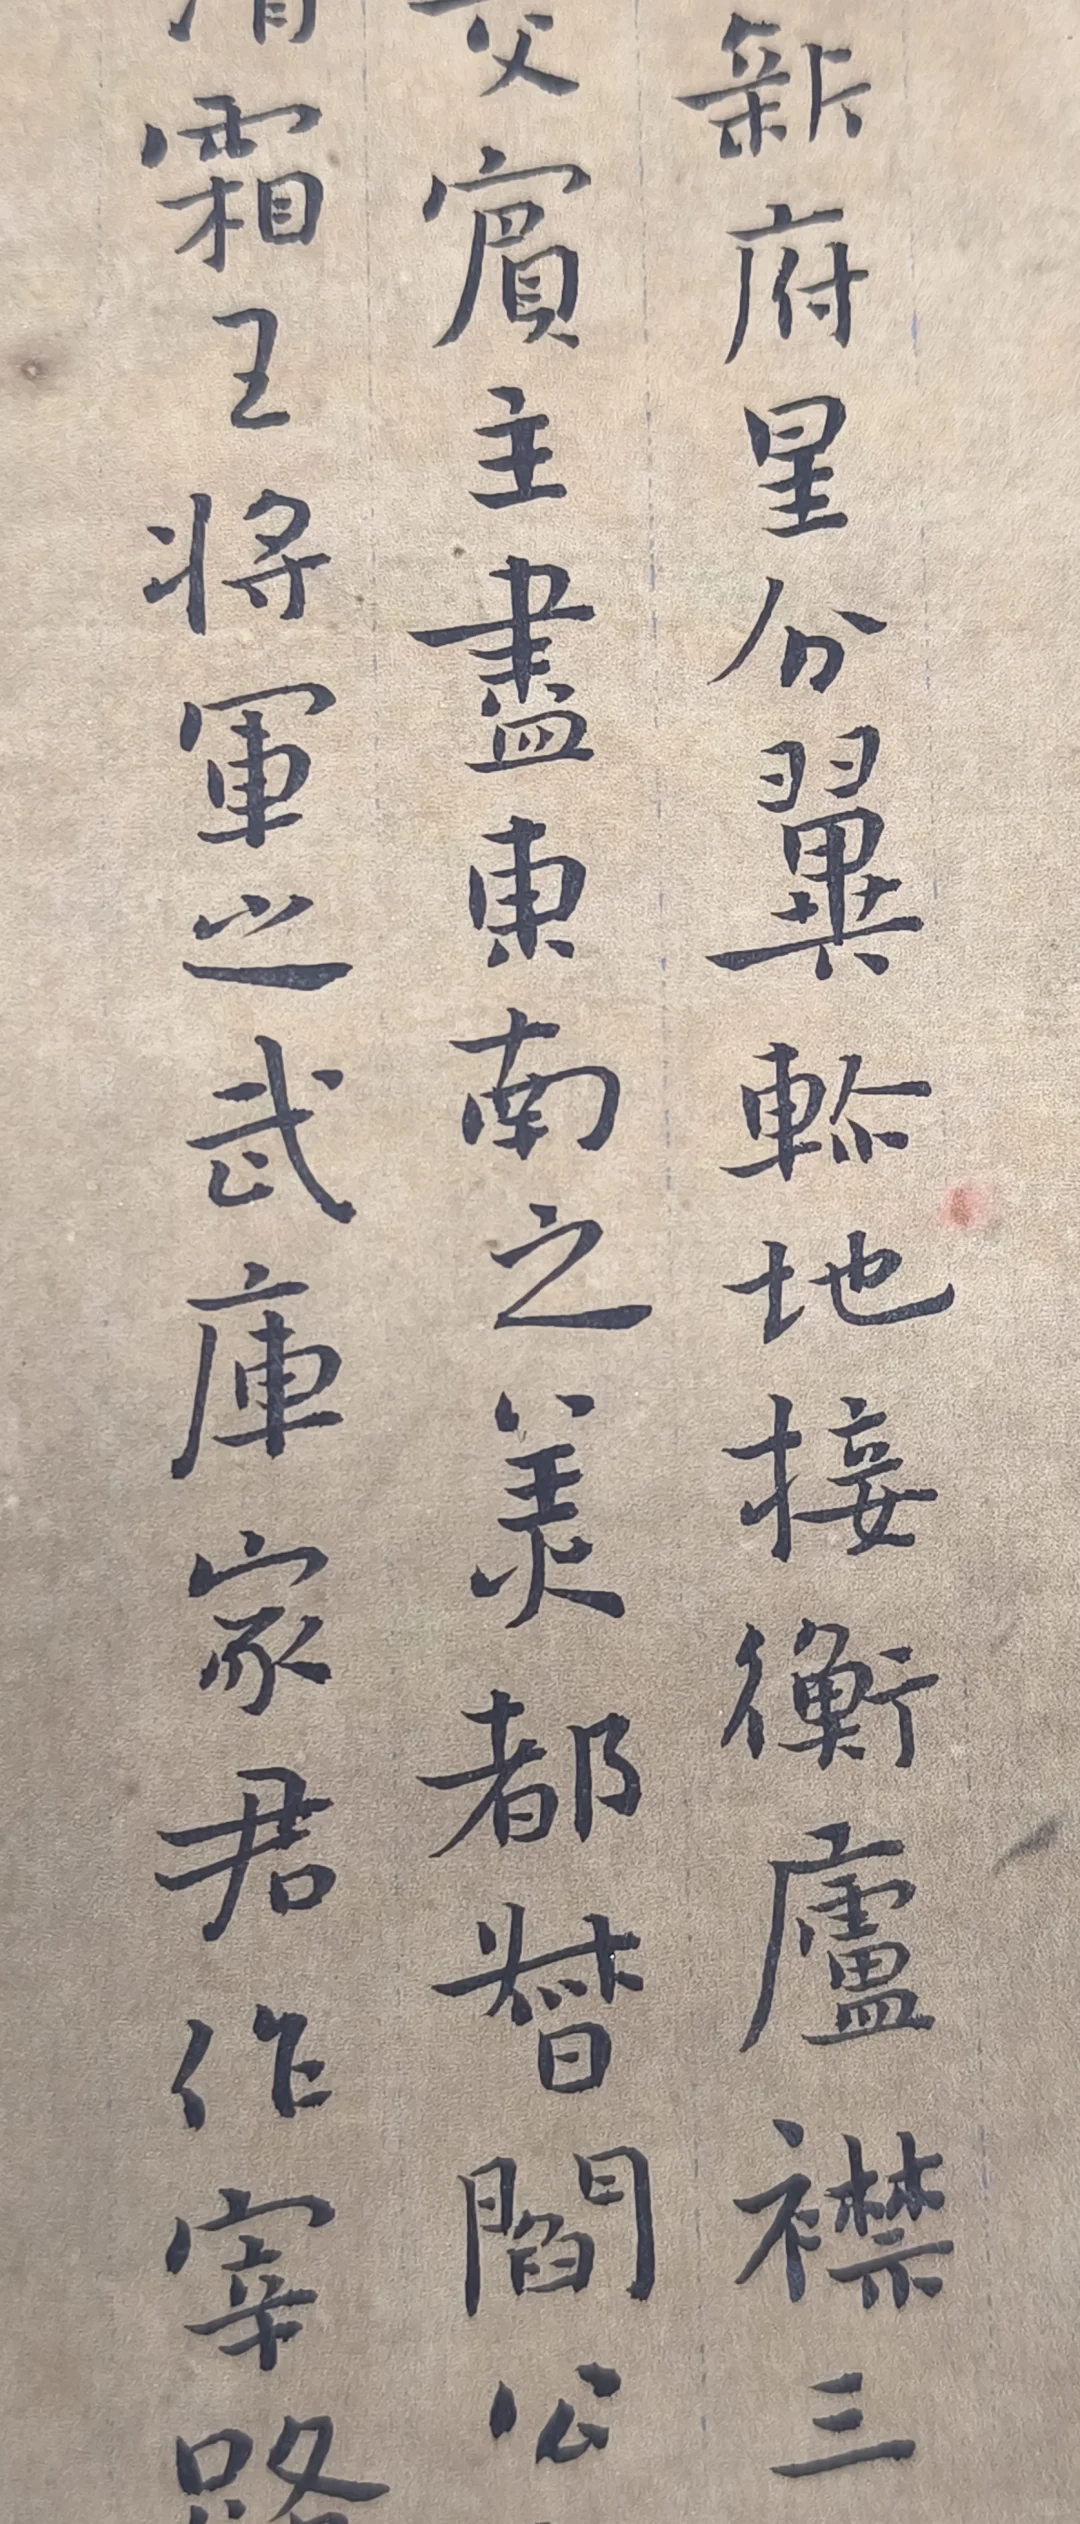 新府星分翼軫地接衡廬襟三
交賓主盡東南之美都督閻公
清霜王將軍之武庫家君作宰路